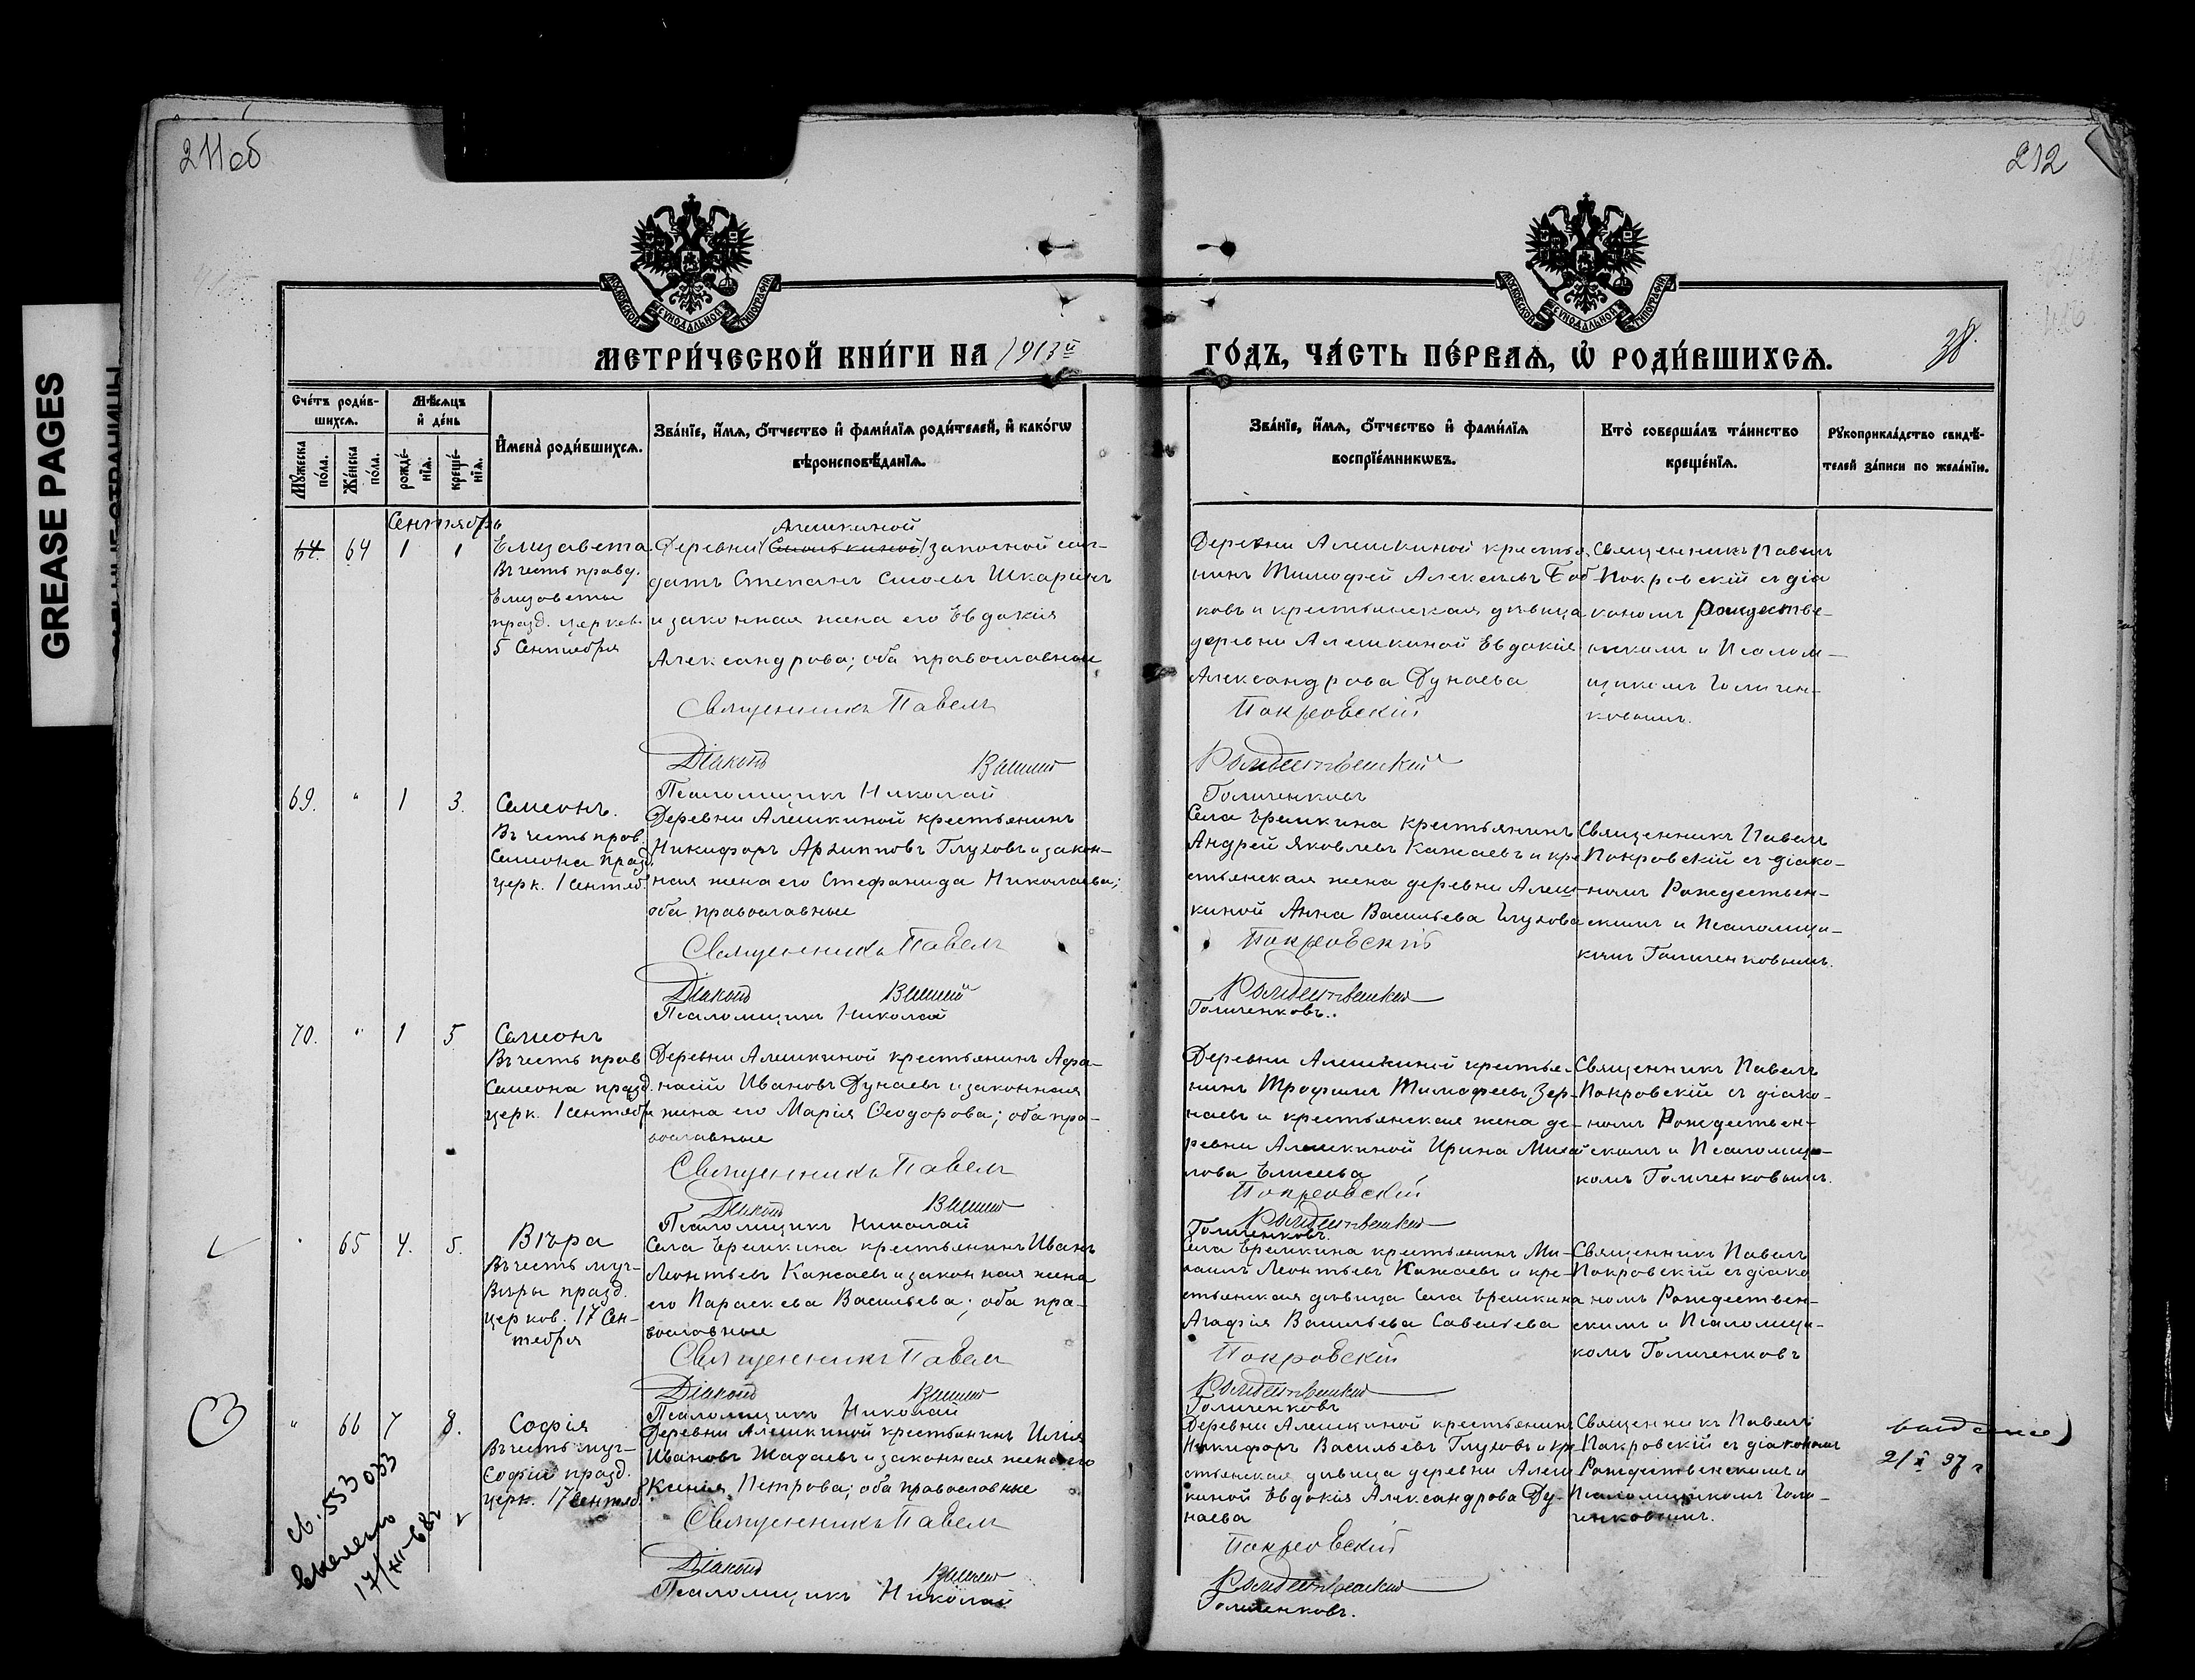 211об
212
GREASE PAGES
МОСКОВСКОЙ СѴНОДАЛЬНОЙ ТИПОГРАФІИ
МОСКОВСКОЙ СѴНОДАЛЬНОЙ ТИПОГРАФІИ
МЕТРИ́ЧЕСКОЙ КНИ́ГИ НА 1913й
ГО́ДЪ, ЧА́СТЬ ПЕ́РВАѦ, Ѡ҆ РОДИ́ВШИХСѦ.
38.
Сче́тъ роди́в-
шихсѧ.
Мꙋ́жеска по́ла.
Же́нска по́ла.
Мѣ́сѧцъ
и҆ де́нь
рожде́-
нїѧ.
креще́-
нїѧ.
И҆мена̀ роди́вшихсѧ.
Зва́нїе, и҆́мѧ, ѻ҆́тчество и҆ фами́лїѧ роди́телей, и҆ како́гѡ
вѣроисповѣ́данїѧ.
Зва́нїе, и҆́мѧ, ѻ҆́тчество и҆ фами́лїѧ
воспрїе́мникѡвъ.
Кто̀ соверша́лъ та́инство
креще́нїѧ.
Рꙋкоприкла́дство свидѣ́-
телей за́писи по жела́нїю.
Сентябрь
64. 64 1 1
Елизавета
Въ честь правд.
Елизаветы
празд. церков.
5 Сентября
Алешкиной
Деревни запасной сол-
датъ Степанъ Шкаринъ
и законная жена его Евдокія
Александрова; оба православные
Священникъ Павелъ
Діаконъ Василій
Псаломщикъ Николай
Деревни Алешкиной крестья-
нинъ Тимофей Алексѣевъ Боб-
ковъ и крестьянская дѣвица
деревни Алешкиной Евдокія
Александрова Дунаева
Покровскій
Рождественскій
Голиченковъ
Священникъ Павелъ
Покровскій съ діа
кономъ Рождестве-
нскимъ и Псалом-
щикомъ Голичен-
ковымъ.
69. " 1 3.
Симеонъ.
Въ честь прав.
Симеона празд.
церк. 1 Сентяб.
Деревни Алешкиной крестьянинъ
Никифоръ Архипповъ Глуховъ и закон-
ная жена его Стефанида Николаева;
оба православные
Священникъ Павелъ
Діаконъ Василій
Псаломщикъ Николай
Села Еремкина крестьянинъ
Андрей Яковлевъ Кажаевъ и кре-
стьянская жена деревни Алеш-
киной Анна Васильева Глухова
Покровскій
Рождественскій
Голиченковъ.
Священникъ Павелъ
Покровскій съ діако-
номъ Рождествен-
скимъ и Псаломщи-
комъ Голиченковымъ.
70. " 1 5
Симеонъ
Въ честь прав.
Симеона празд.
церк. 1 Сентября
Деревни Алешкиной крестьянинъ Афа-
насій Ивановъ Дунаевъ и законная
жена его Марія Ѳеодорова; оба пра-
вославные
Священникъ Павелъ
Діаконъ Василій
Псаломщикъ Николай
Деревни Алешкиной крестья-
нинъ Трофимъ Тимофеевъ Зер-
наевъ и крестьянская жена де-
ревни Алешкиной Ирина Михай
лова Елисеева
Покровскій
Рождественскій
Голиченковъ.
Священникъ Павелъ
Покровскій съ діако-
номъ Рождествен-
скимъ и Псаломщи-
комъ Голиченковымъ.
" 65 4. 5.
Вѣра
Въ честь муч-
Вѣры празд.
церков. 17 Сен-
тября
Села Еремкина крестьянинъ Иванъ
Леонтьевъ Кажаевъ и законная жена
его Параскева Васильева; оба пра-
вославные
Священникъ Павелъ
Діаконъ Василій
Псаломщикъ Николай
Села Еремкина крестьянинъ Ми-
хаилъ Леонтьевъ Кажаевъ и кре-
стьянская дѣвица Села Еремкина
Агафія Васильева Савельева
Покровскій
Рождественскій
Голиченковъ
Священникъ Павелъ
Покровскій съ діако
номъ Рождествен-
скимъ и Псаломщи-
комъ Голиченковъ
" 66 7 8.
Софія
Въ честь муч-
Софіи празд.
церк. 17 Сентяб.
Деревни Алешкиной крестьянинъ Илія
Ивановъ Жадаевъ и законная жена его
Ксенія Петрова; оба православные
Священникъ Павелъ
Діаконъ Василій
Псаломщикъ Николай
Деревни Алешкиной крестьянинъ
Никифоръ Васильевъ Глуховъ и кре
стьянская дѣвица деревни Алеш-
киной Евдокія Александрова Ду-
наева
Покровскій
Рождественскій
Голиченковъ.
Священникъ Павелъ
Покровскій съ діакономъ
Рождественскимъ и
Псаломщикомъ Голи-
ченковымъ.
2/X 37 г
св. 553033
17/XII-68г